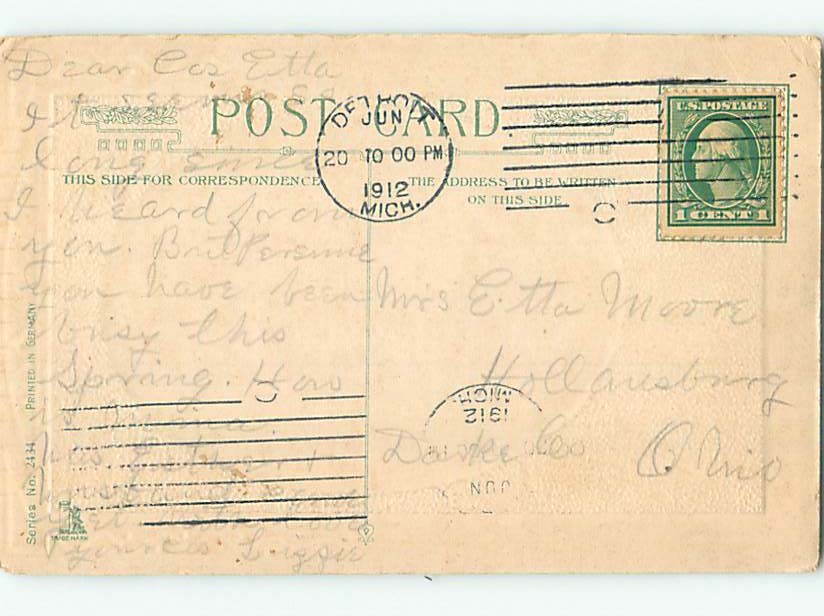 Dear Cos Etta
it seems so
long since
I heard from
you. But Persume
you have been
busy this
Spring. How
is
has
husband
yours Lizzie
POST CARD
THIS SIDE FOR CORRESPONDENCE
THE ADDRESS TO BE WRITTEN
ON THIS SIDE
DETROIT
JUN
20 10 00 PM
1912
MICH.
U.S. POSTAGE
1 CENT 1
Mrs Etta Moore
Hollansburg
Darke Co Ohio
MICH.
1912
JUN
Series No. 2434 PRINTED IN GERMANY
TRADE MARK